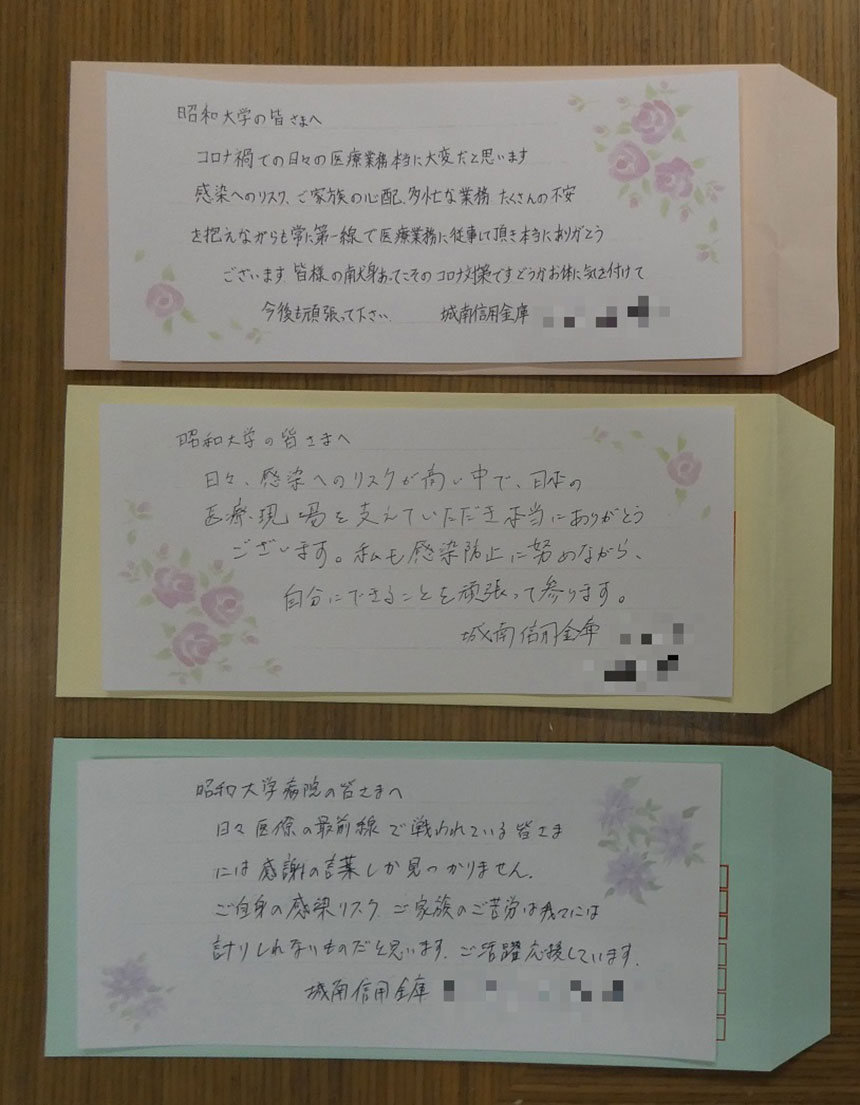 昭和大学の皆さまへ
コロナ禍での日々の医療業務本当に大変だと思います
感染へのリスク、ご家族の心配、多忙な業務 たくさんの不安
を抱えながらも常に第一線で医療業務に従事して頂き本当にありがとう
ございます 皆様の献身あってこそのコロナ対策です どうかお体に気を付けて
今後も頑張って下さい 城南信用金庫
昭和大学の皆さまへ
日々、感染へのリスクが高い中で、日本の
医療現場を支えていただき本当にありがとう
ございます。私も感染防止に努めながら、
自分にできることを頑張って参ります。
城南信用金庫
昭和大学病院の皆さまへ
日々医療の最前線で戦われている皆さま
には感謝の言葉しか見つかりません。
ご自身の感染リスク、ご家族のご苦労は我々には
計りしれないものだと思います。ご活躍応援しています。
城南信用金庫